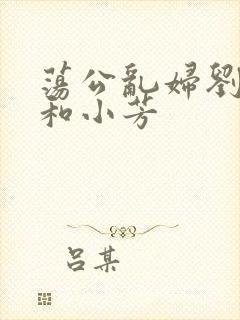 蕩公亂婦劉
和小芳
吕某